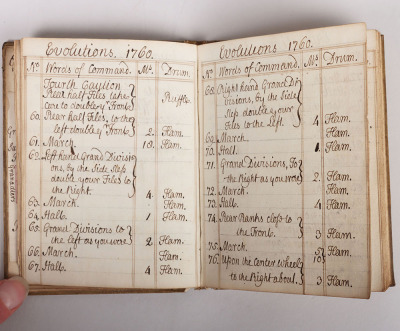 Evolutions, 1760.
No. Words of Command. Ms. Drum.
Fourth Caution
Rear half Files take
Care to double ye Front
Ruffle.
60. Rear half Files, to the
left double ye Front
2 Flam.
61. March 10. Flam.
62. Left hand Grand Divisi-
ons, by the Side Step
double your Files to
the Right.
4 Flam.
63. March. Flam.
64. Halt. 1 Flam.
65. Grand Divisions to
the left as you were
2 Flam.
66. March. Flam.
67. Halt. 4 Flam.
Evolutions 1760.
No. Words of Command. Ms. Drum.
68. Right hand Grand Di-
visions, by the Side
Step double your
Files to the Left.
4 Flam.
69. March. Flam.
70. Halt. 1 Flam.
71. Grand Divisions, To
the Right as you were
2 Flam.
72. March. Flam.
73. Halt. 4 Flam.
74. Rear Ranks close to
the Front.
3 Flam.
75. March. Flam.
76. Upon the Center Wheel
to the Right about.
3 Flam.